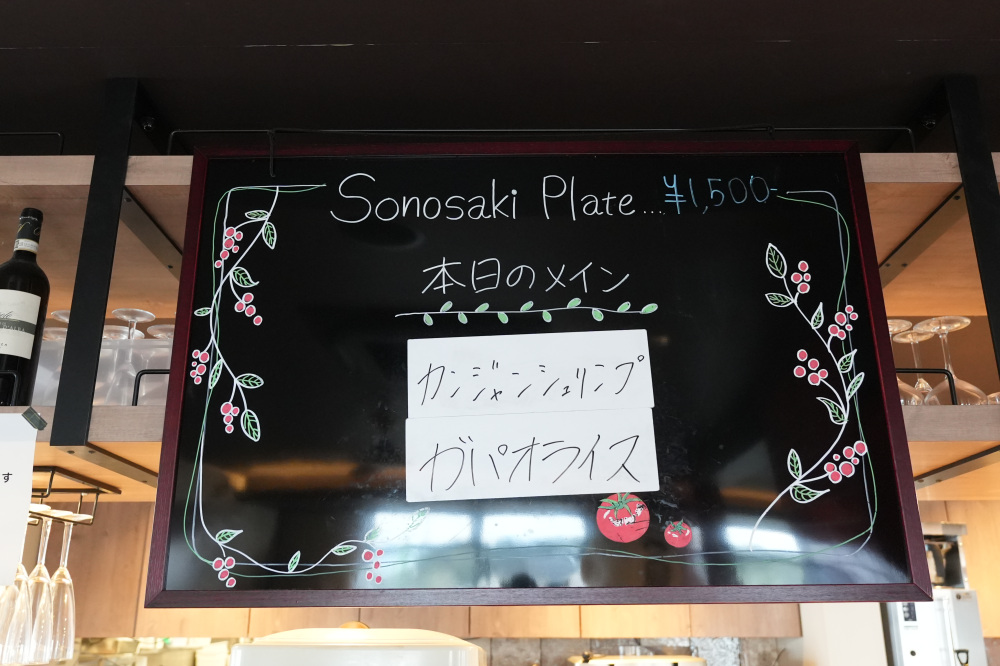 Sonosaki Plate...¥1,500-
本日のメイン
カンジャンシュリンプ
ガパオライス
す